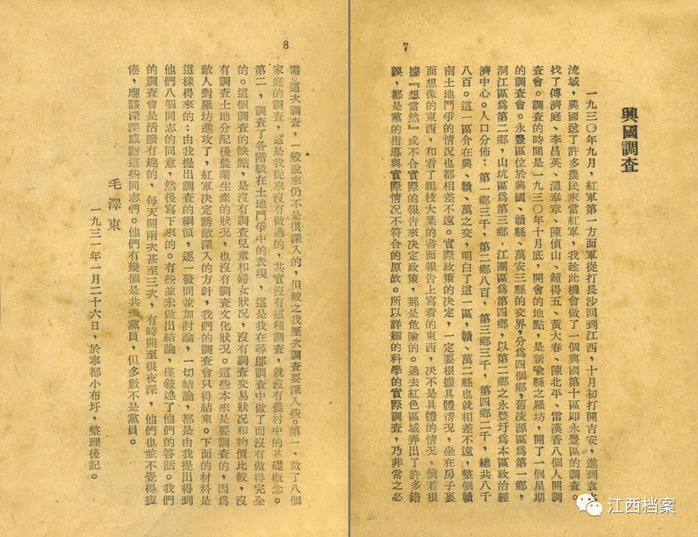 7
興國調查
一九三〇年九月，紅軍第一方面軍從打長沙回到江西，十月初打開吉安，進到袁水
流域，興國送了許多農民來當紅軍，我趁此機會做了一個興國第十區即永豐區的調查。
找了傅濟庭、李昌英、溫奉章、陳偵山、鍾得五、黃大春、陳北平、雷漢香八個人開調
查會。調查的時間是一九三〇年十月底，開會的地點，是新喻縣之羅坊，開了一個星期
的調查會。永豐區位於興國、贛縣、萬安三縣的交界，分爲四個鄉，舊凌源區爲第一鄉，
洞江區爲第二鄉，山坑區爲第三鄉，江團區爲第四鄉，以第二鄉之永豐圩爲本區政治經
濟中心。人口分佈：第一鄉三千，第二鄉八百，第三鄉三千，第四鄉二千，總共八千
八百。這一區介在興、贛、萬之交，明白了這一區，贛、萬二縣也就相差不遠，整個贛
南土地鬥爭的情況也都相差不遠。實際政策的决定，一定要根據具體情況，坐在房子裏
面想像的東西，和看了粗枝大葉的書面報告上寫着的東西，决不是具體的情況，倘若根
據『想當然』或不合實際的報告來决定政策，那是危險的。過去紅色區域弄出了許多錯
誤，都是黨的指導與實際情況不符合的原故。所以詳細的科學的實際調查，乃非常之必
8
需。這次調查，一般說來仍不是很深入的，但較之我歷次調查要深入些。第一，做了八個
家庭的調查，這是我從來沒有做過的，其實沒有這種調查，就沒有農村中的基礎概念。
第二，調查了各階級在土地鬥爭中的表現，這是我在尋鄔調查中做了而沒有做得完全
的。這個調查的缺點，是沒有調查兒童和婦女狀況，沒有調查交易狀況和物價比較，沒
有調查土地分配後農業生產的狀況，也沒有調查文化狀況。這些本來是要調查的，因爲
敵人對羅坊進攻了，紅軍决定誘敵深入的方針，我們的調查會只得結束。下面的材料是
這樣得來的：由我提出調查的綱領，逐一發問並加討論，一切結論，都是由我提出得到
他們八個同志的同意，然後寫下來的。有些並未做出結論，僅敘述了他們的答話。我們
的調查會是活潑有趣的，每天開兩次甚至三次，有時開至很夜深，他們也並不覺得疲
倦，應該深深感謝這些同志們。他們有幾個是共產黨員，但多數不是黨員。
毛澤東
一九三一年一月二十六日，於寧都小布圩，整理後記。
江西档案